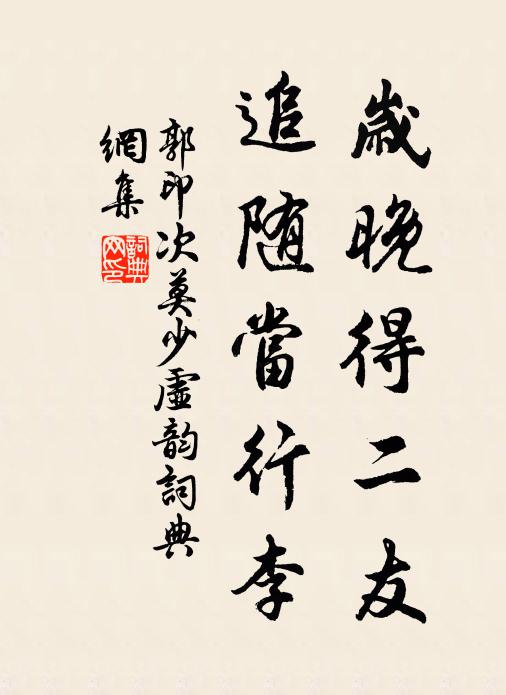 歲晚得二友
追随當行李
郭印次莫少虛韵詞典
網集
詞典網印